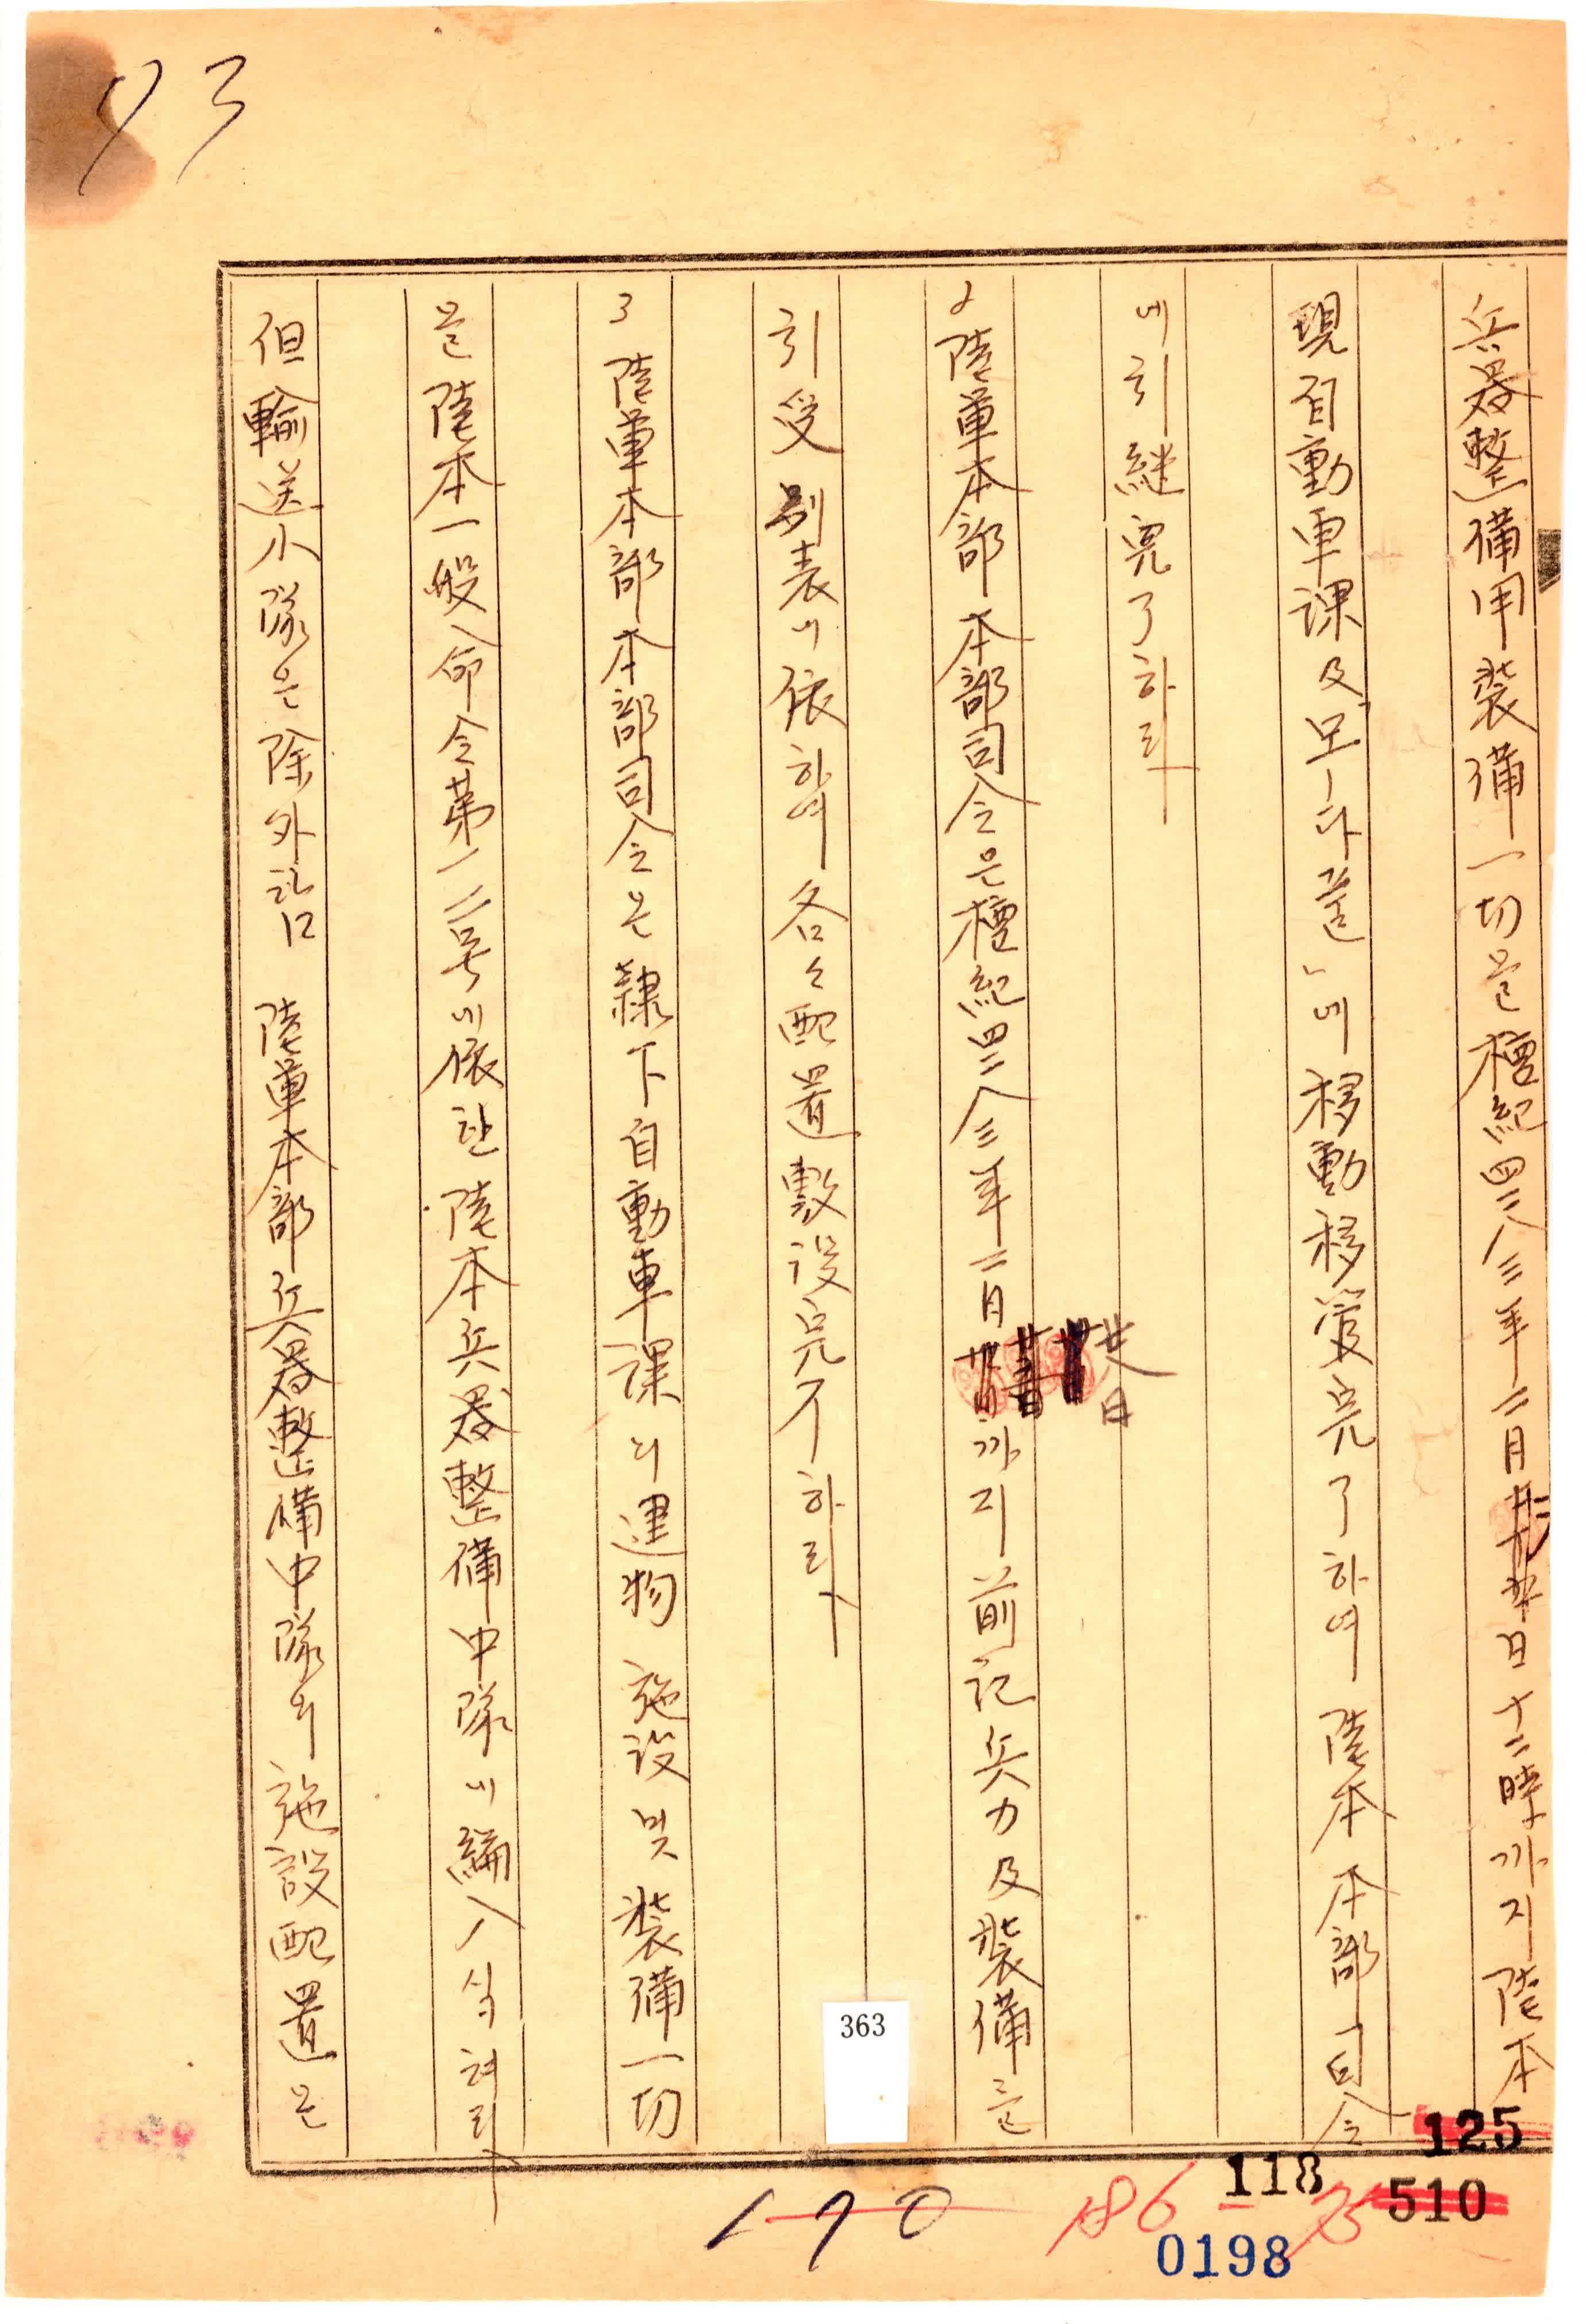 兵器整備用裝備一切을檀紀四二八三年二月 日十二時까지陸本
現自動車課及모-타풀」에移動移管完了하여陸本本部司令
에引継完了하라
2 陸軍本部本部司令은檀紀四二八三年二月廿八日까지前記兵力及裝備를
引受別表에依하여各々配置敷設完了하라
3 陸軍本部本部司令은隷下自動車課의建物施設및裝備一切
을陸本一般命令第一二号에依한陸本兵器整備中隊에編入시켜라
但輸送小隊은除外함 陸軍本部兵器整備中隊의施設配置은
93
363
125
118
510
170
186
75
0198